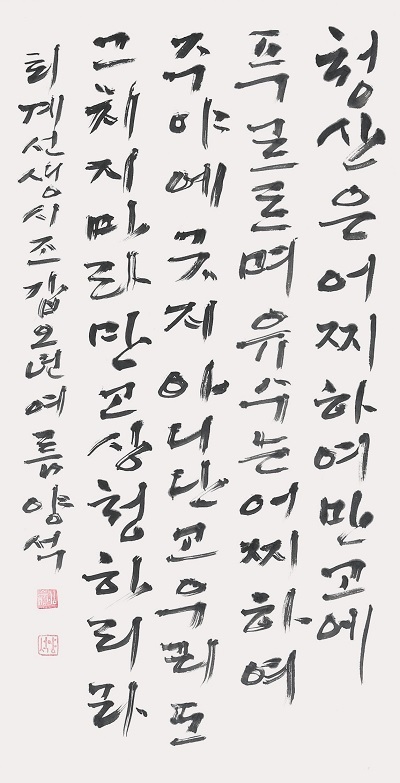 청산은어찌하여만고에
푸르르며유수는어찌하여
주야에긋지아니난고우리도
그치지마라만고상청하리라
퇴계선생시조갑오년여름양석